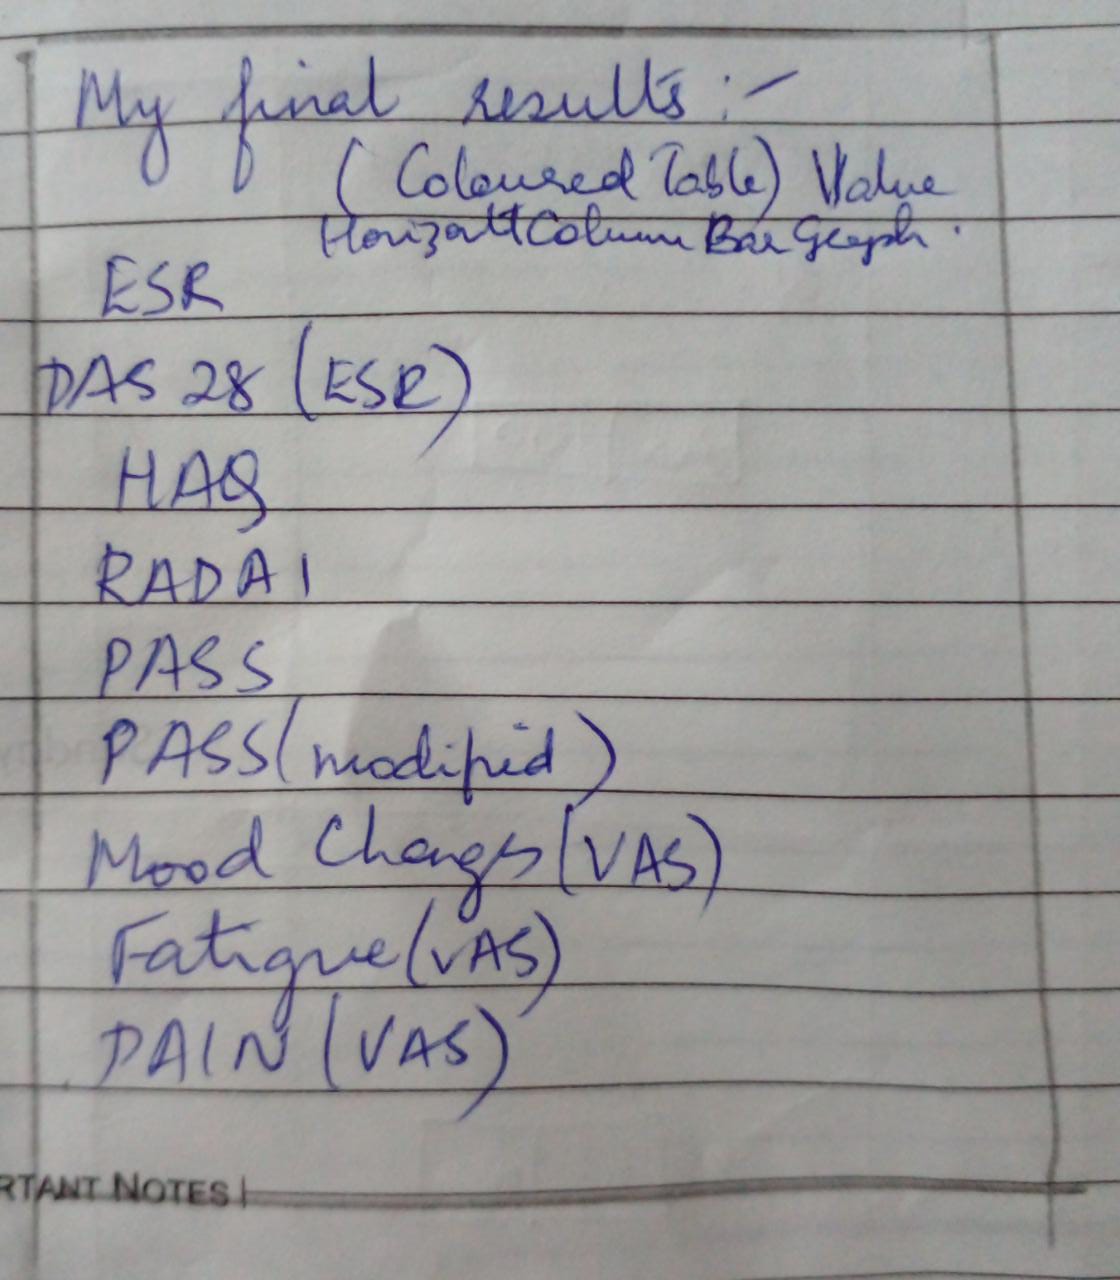 My final results :-
(Coloured Table) Value
Column Bar Graph.
ESR
DAS 28 (ESR)
HAQ
RADAI
PASS
PASS (modified)
Mood Changes (VAS)
Fatigue (VAS)
PAIN (VAS)
RTANT NOTES